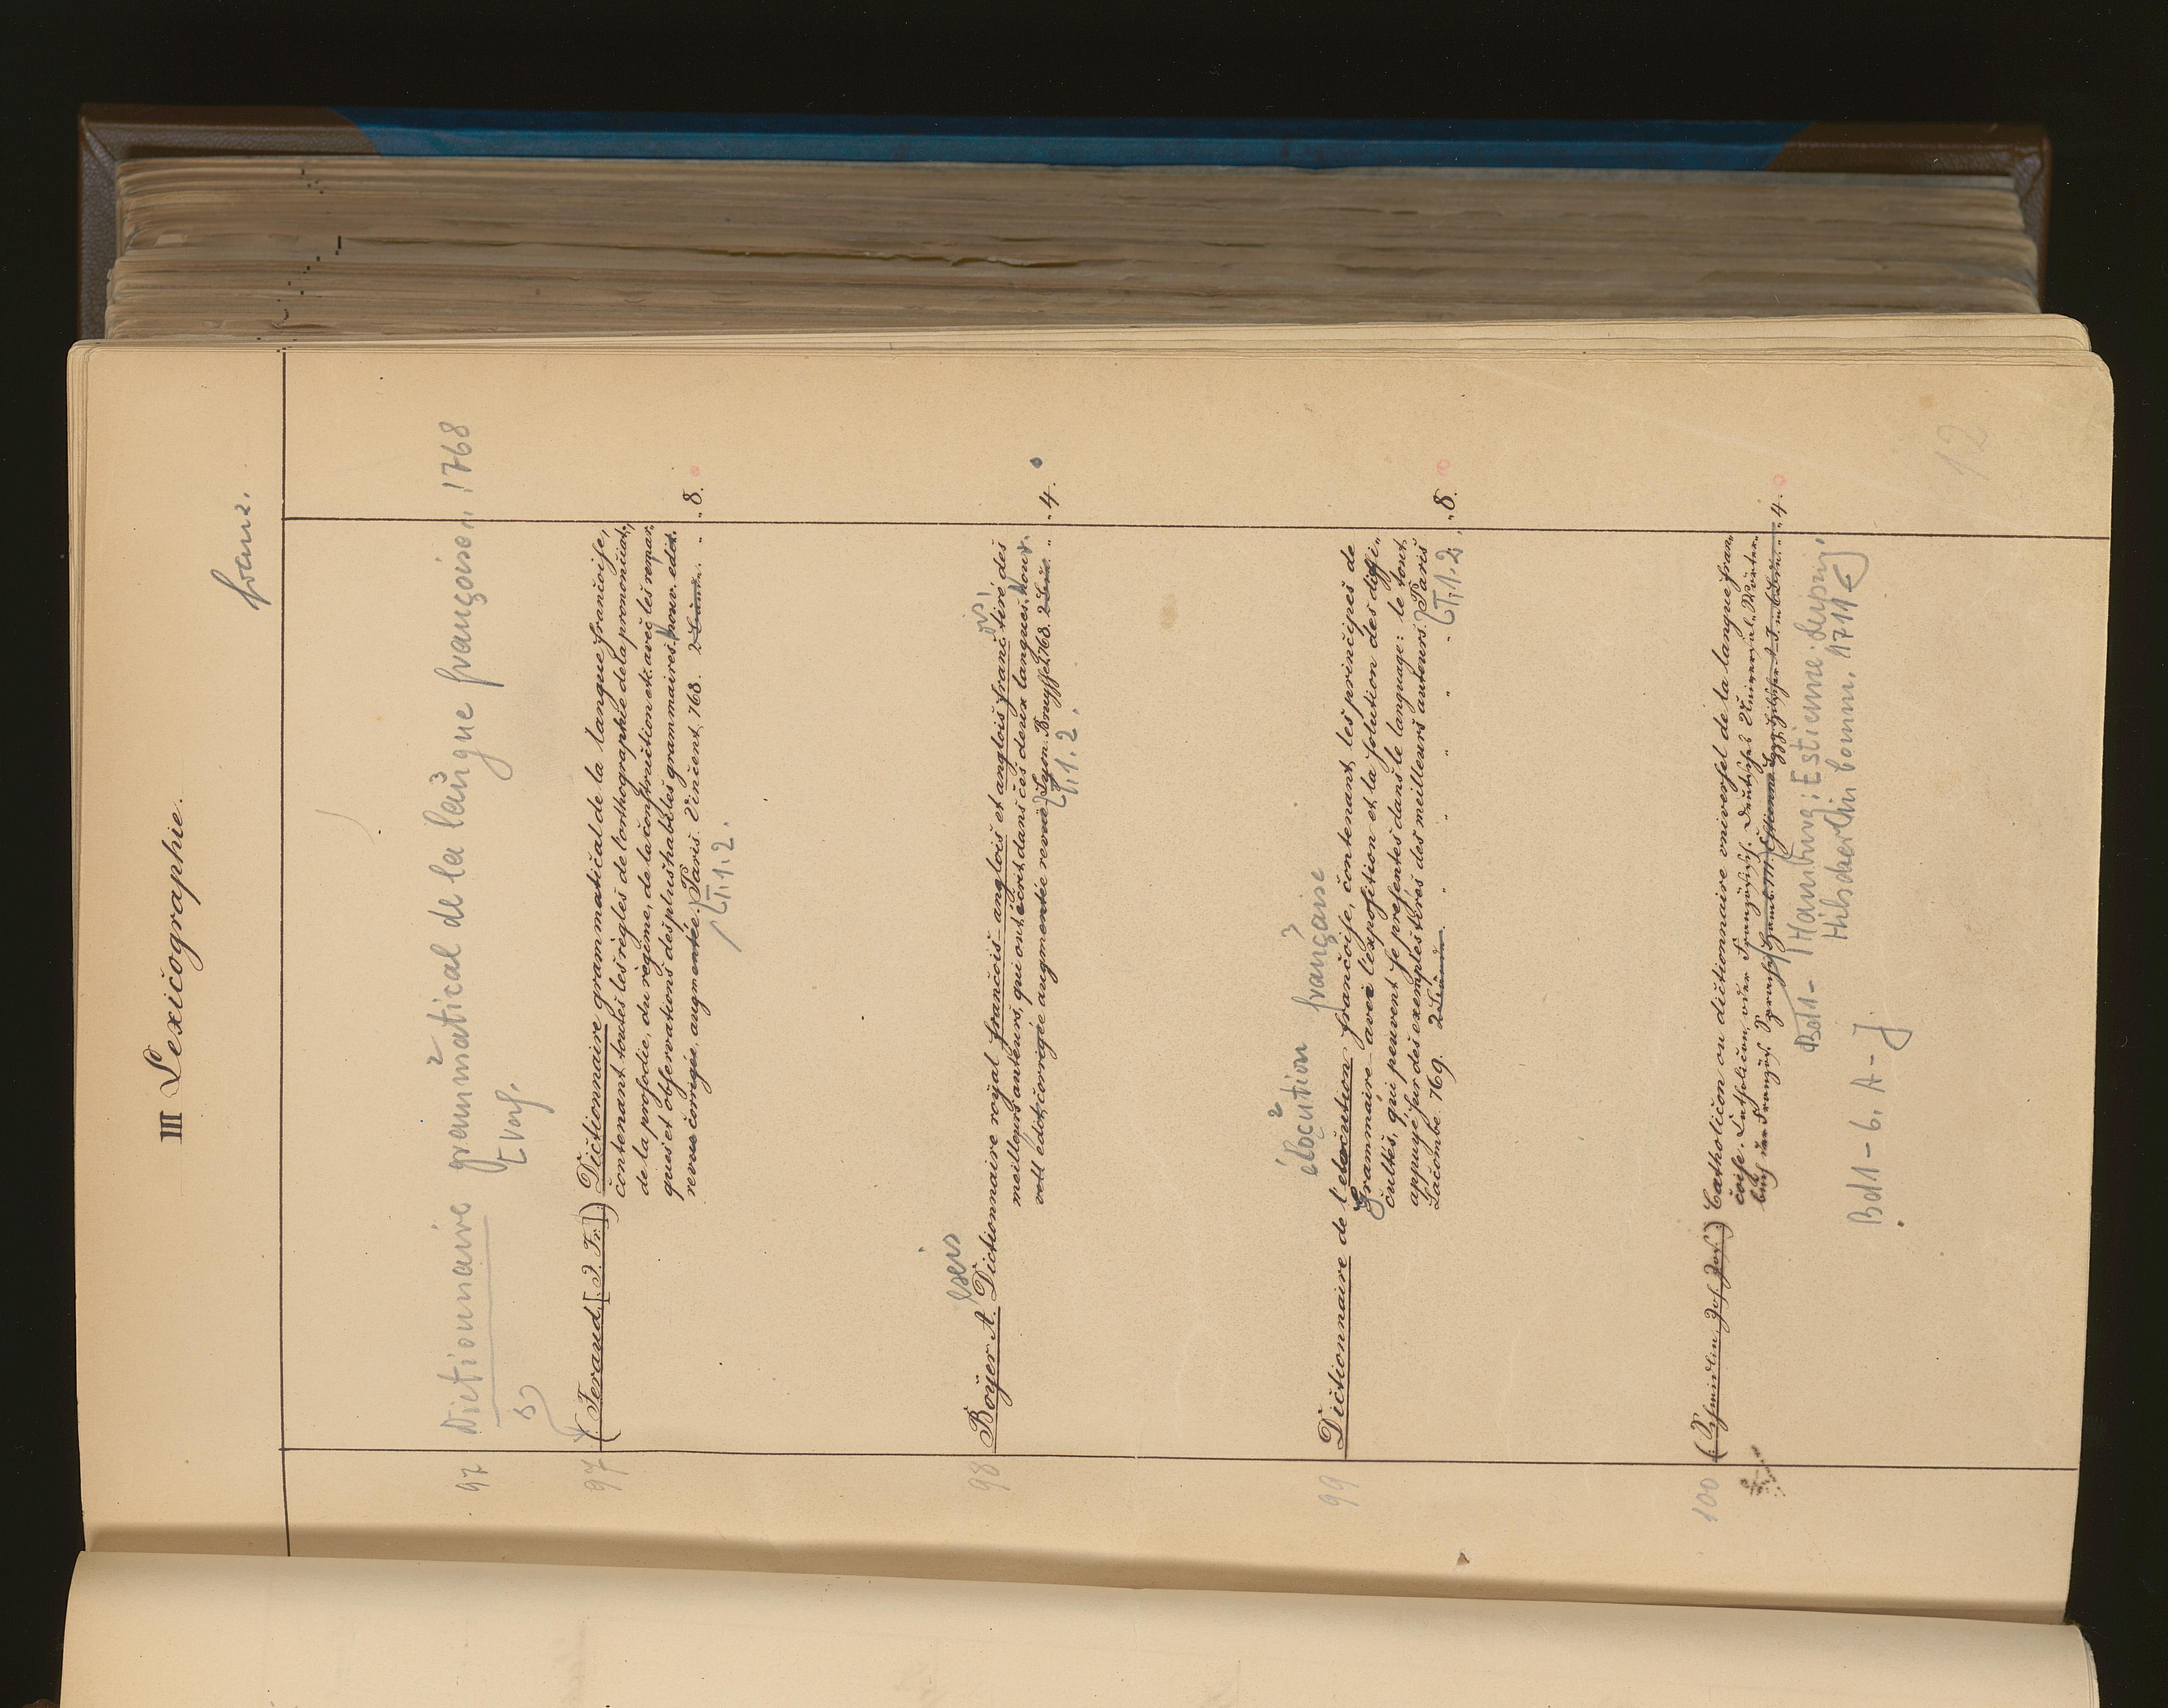 III Lexicographie.
franz.
97 Dictionnaire grammatical de la langue françoise, 1768
97 (Feraud [J. Fr.]) Dictionnaire grammatical de la langue françoise,
contenant toutes les règles de l'orthographie de la prononciat.,
de la prosodie, du régime, de la construction etc. avec les remar-
ques et observations des plus habiles grammaires nouv. edit.
revue corrigée, augmentée. Paris. Vincent, 768. „ 8.
[T. 1. 2.
98 Boyer A. Dictionnaire royal francois-anglois et anglois-franc. tiré des
meilleurs auteurs, qui ont écrit dans ces deux langues, nouv.
vell edit, corrigée augmentée revuë Lyon. Bruyset, 768. „ 4.
[T. 1. 2.
élocution française
99 Dictionnaire de l'elocution françoise, contenant les principes de
Grammaire avec l'exposition et la solution des diffi-
cultés, qui peuvent se présenter dans le language: le tout
appuyé sur des exemples tirés des meilleurs auteurs. Paris
Lacombe. 769. „ 8.
[T. 1. 2.
100 Catholicon ou dictionnaire universel de la langue fran-
çoise. Catholicon, oder Französisch Deutsches Universal-Wörter-
buch der Französ. Sprache „ 4.
Bd 1 - Hamburg; Estienne; Leipzig;
in comm. 1711
Bd 1 - 6. A - J.
12